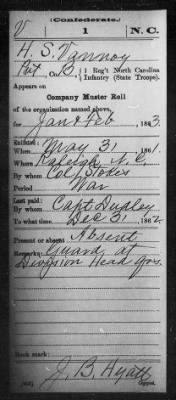 (Confederate.)
V 1 N. C.
H. S. Vannoy
Pvt, Co. B, 1 Reg't North Carolina
Infantry (State Troops).
Appears on
Company Muster Roll
of the organization named above,
for Jan & Feb, 1863.
Enlisted:
When May 31, 1861.
Where Raleigh N. C.
By whom Col Stokes
Period War
Last paid:
By whom Capt Dudley
To what time Dec 31, 1862.
Present or absent Absent
Remarks: Guard at
Division Head qrs.
Book mark:
J. B. Hyatt
Copyist.